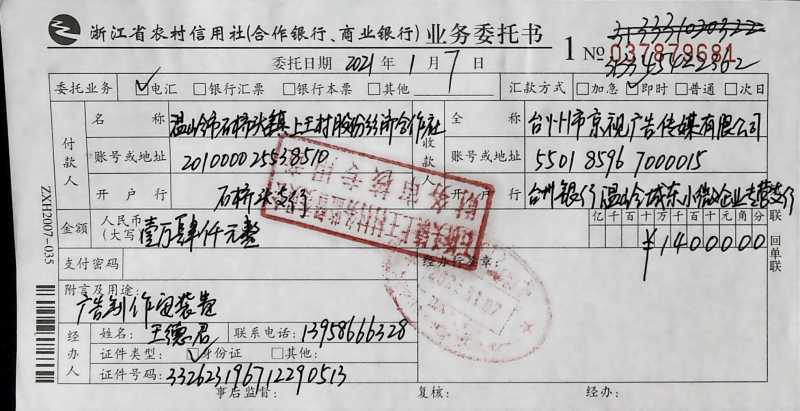 浙江省农村信用社(合作银行、商业银行)业务委托书
1 No 037879681
313331030322
313345422362
委托日期 2021 年 1 月 7 日
委托业务 ☑电汇 □银行汇票 □银行本票 □其他 汇款方式 □加急 ☑即时 □普通 □次日
付款人 名称 温岭市石桥头镇上王村股份经济合作社
账号或地址 201000025538510
开户行 石桥头支行
收款人 全称 台州市京视广告传媒有限公司
账号或地址 550185967000015
开户行 台州银行温岭城东小微企业专营支行
金额 人民币(大写) 壹万肆仟元整
亿千百十万千百十元角分
¥1400000
支付密码
附言及用途:
广告制作安装费
经办人签章:
经办人 姓名: 王德君 联系电话: 13958666328
证件类型: ☑身份证 □其他:
证件号码: 332623196712290513
事后监督: 复核: 经办:
联 回单联
ZXH2007-035
财务审核专用章